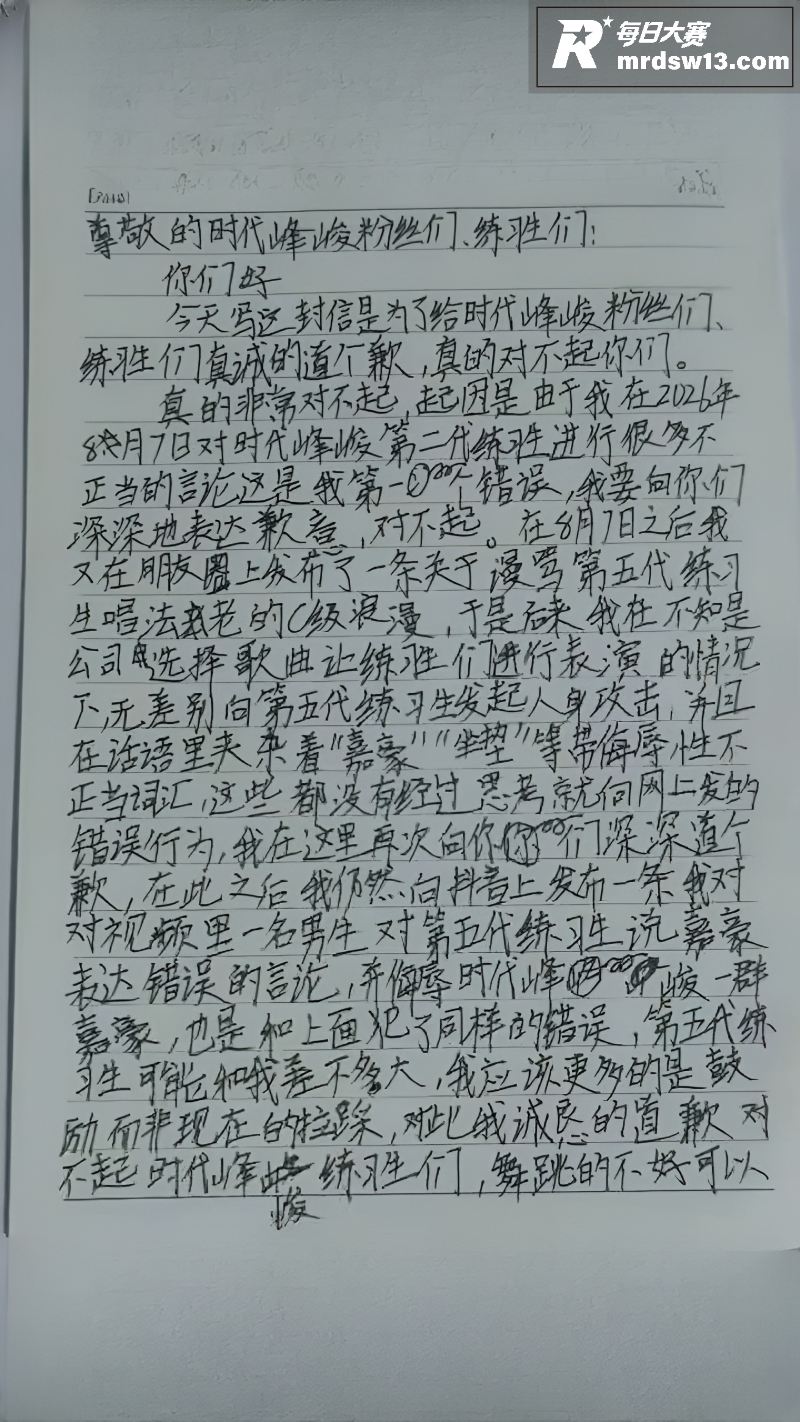 每日大赛
mrdsw13.com
尊敬的时代峰峻粉丝们、练习生们：
你们好
今天写这封信是为了给时代峰峻粉丝们、
练习生们真诚的道个歉，真的对不起你们。
真的非常对不起，起因是由于我在2026年
8月7日对时代峰峻第二代练习生进行很多不
正当的言论这是我第一个错误，我要向你们
深深地表达歉意，对不起。在8月7日之后我
又在朋友圈上发布了一条关于谩骂第五代练习
生唱法老的C级浪漫，于是后来我在不知是
公司选择歌曲让练习生们进行表演的情况
下，无差别向第五代练习生发起人身攻击，并且
在话语里夹杂着“嘉豪”“坐垫”等带侮辱性不
正当词汇，这些都没有经过思考就向网上发的
错误行为，我在这里再次向你们深深道个
歉，在此之后我仍然向抖音上发布一条我对
对视频里一名男生对第五代练习生说嘉豪
表达错误的言论，弃侮辱时代峰峻一群
嘉豪，也是和上面犯了同样的错误，第五代练
习生可能和我差不多大，我应该更多的是鼓
励而非现在的拉踩，对此我诚恳的道歉对
不起时代峰峻练习生们，舞跳的不好可以